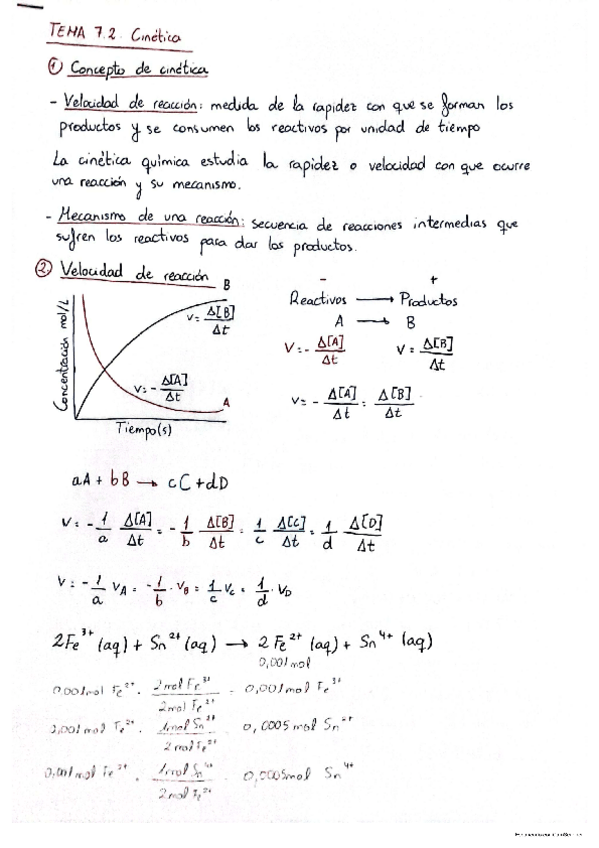 TEMA 7.2. Cinética
① Concepto de cinética
- Velocidad de reacción: medida de la rapidez con que se forman los
productos y se consumen los reactivos por unidad de tiempo
La cinética química estudia la rapidez o velocidad con que ocurre
una reacción y su mecanismo.
- Mecanismo de una reacción: secuencia de reacciones intermedias que
sufren los reactivos para dar los productos.
② Velocidad de reacción
Concentración mol/L
B
V = Δ[B]/Δt
V = - Δ[A]/Δt
A
Tiempo(s)
- +
Reactivos → Productos
A → B
V = - Δ[A]/Δt V = Δ[B]/Δt
V = - Δ[A]/Δt = Δ[B]/Δt
aA + bB → cC + dD
V = - 1/a Δ[A]/Δt = - 1/b Δ[B]/Δt = 1/c Δ[C]/Δt = 1/d Δ[D]/Δt
V = - 1/a VA = - 1/b · VB = 1/c VC = 1/d · VD
2Fe³⁺ (aq) + Sn²⁺ (aq) → 2 Fe²⁺ (aq) + Sn⁴⁺ (aq)
0,001 mol
0,001 mol Fe²⁺ · 2 mol Fe³⁺/2 mol Fe²⁺ = 0,001 mol Fe³⁺
0,001 mol Fe²⁺ · 1 mol Sn²⁺/2 mol Fe²⁺ = 0,0005 mol Sn²⁺
0,001 mol Fe²⁺ · 1 mol Sn⁴⁺/2 mol Fe²⁺ = 0,0005 mol Sn⁴⁺